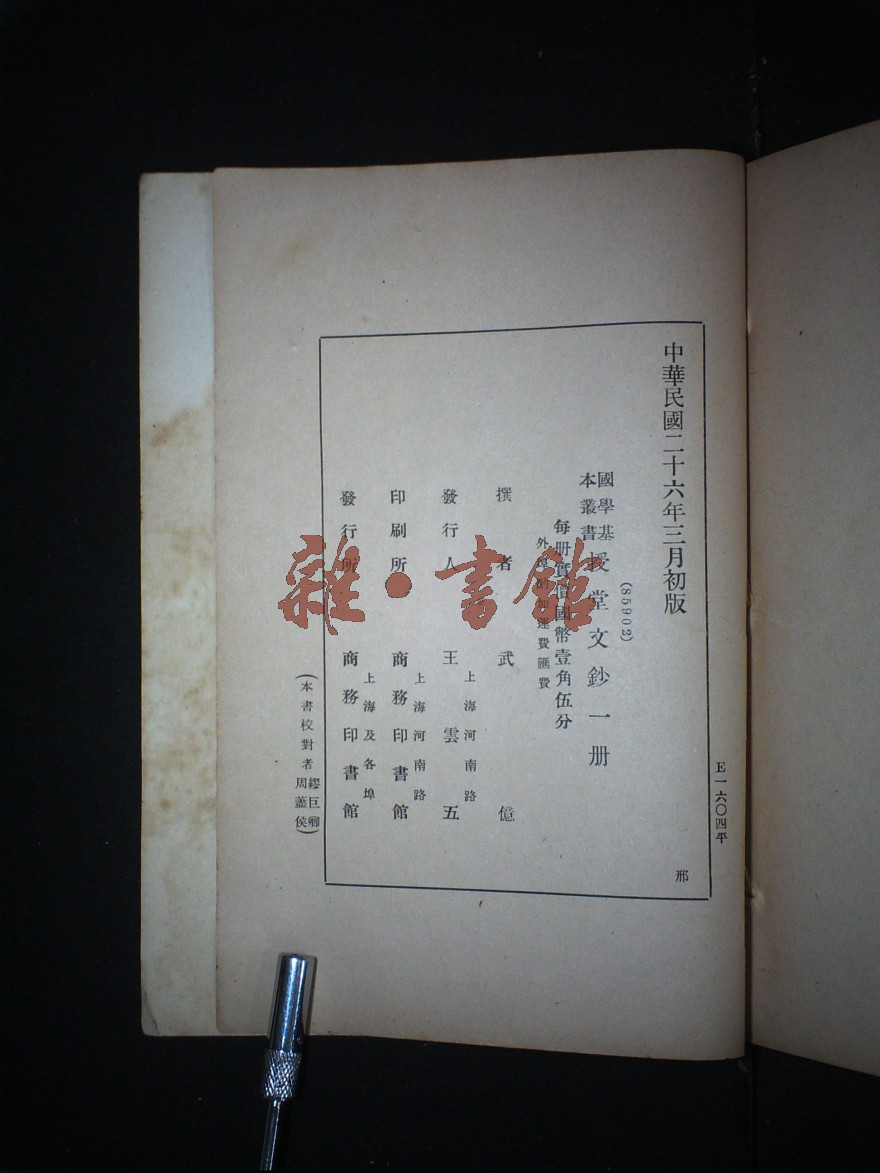 中華民國二十六年三月初版
(85902)
國學基本叢書 授堂文鈔一册
每册實價國幣壹角伍分
外埠酌加運費匯費
撰者 武億
上海河南路
發行人 王雲五
上海河南路
印刷所 商務印書館
上海及各埠
發行所 商務印書館
(本書校對者 繆巨卿 周藎侯)
E一六〇四平
邢
雜·書館